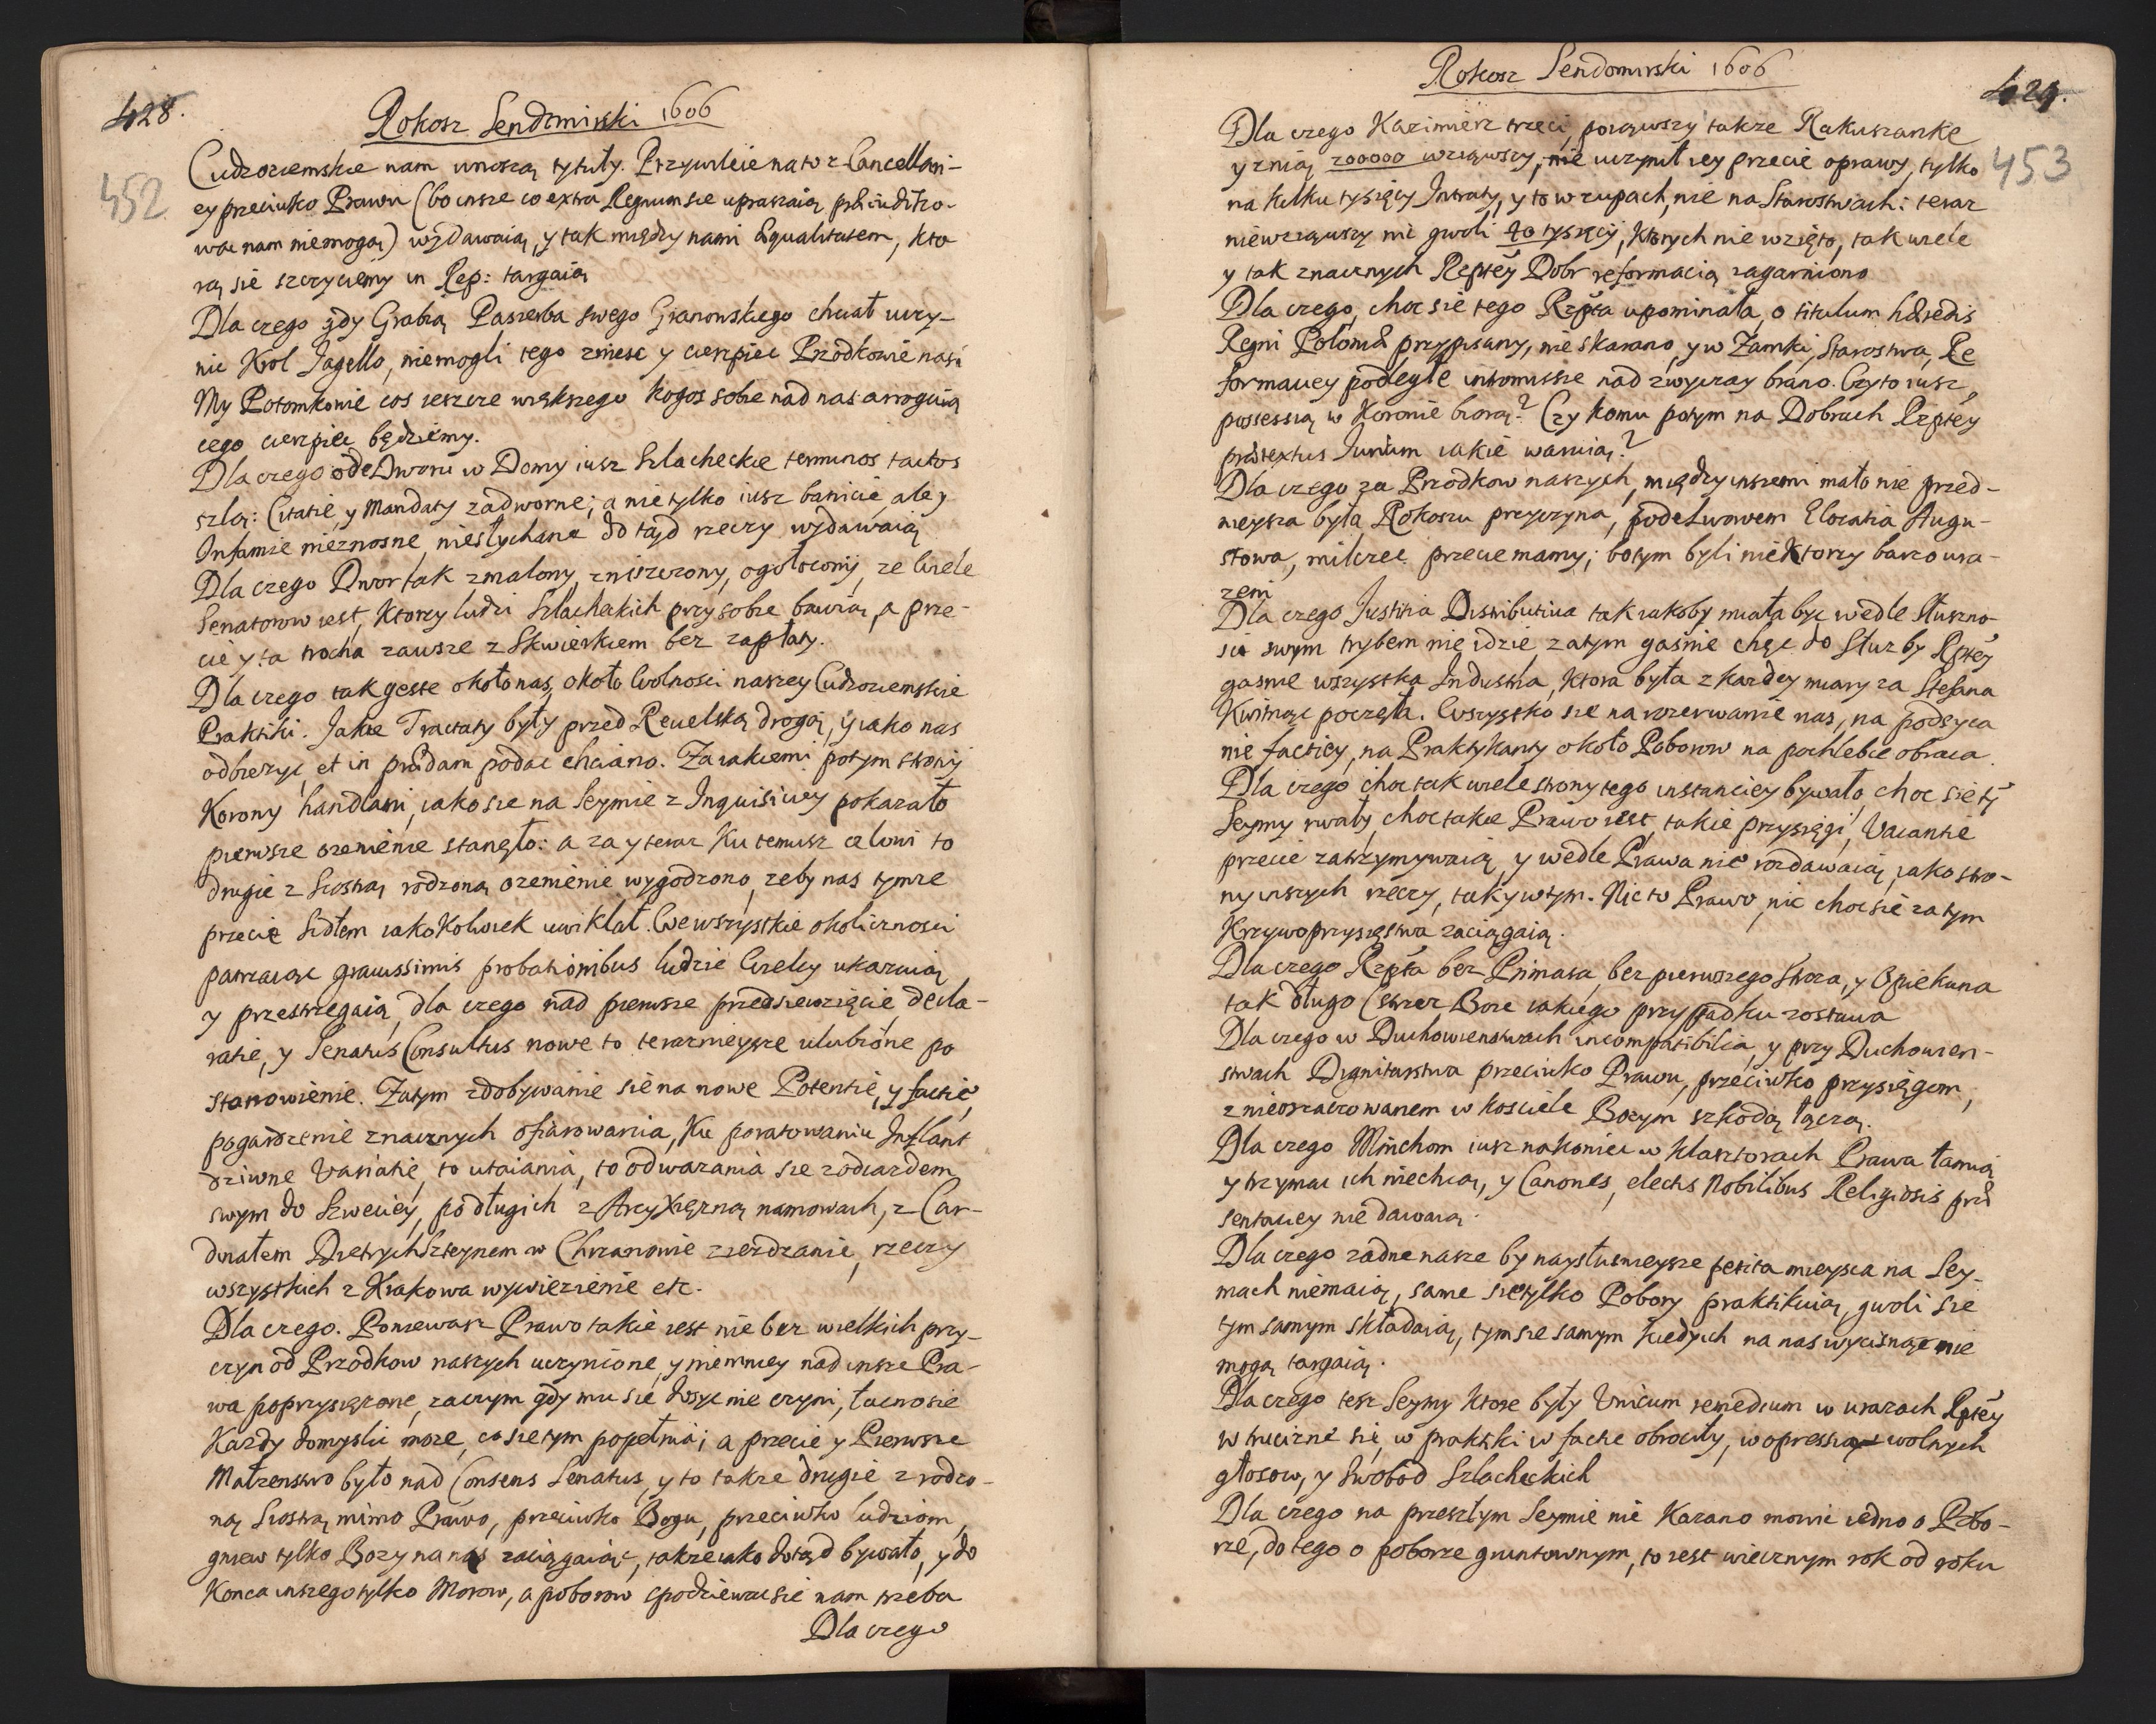 428.
Rokosz Sendomirski 1606
452
Cudzoziemskie nam wnoszą tytuły. Przywileie na to z Cancellari-
ey przeciwko Prawu (bo insze co extra Regnum sie upraszaią præiuditio-
wac nam niemogą) wydawaią, y tak między nami Æqualitatem, kto
rą sie szczyciemy in Rep: targaią
Dla czego gdy Grabią Pasierba swego Granowskiego chciał uczy-
nic Krol Jagello, niemogli tego zniesc y cierpiec Przodkowie nasi
My Potomkowie cos ieszcze większego kogos sobie nad nas arroguią
cego cierpiec będziemy.
Dla czego ode Dworu w Domy iusz Szlacheckie terminos tactos
szlą: Citatie, y Mandaty zadworne; a nie tylko iusz banicie, ale y
Infamie nieznosne niesłychane do tąd rzeczy wydawaią
Dla czego Dwor tak zmalony, zniszczony, ogołocony, ze wiele
Senatorow iest, Ktorzy ludzi Szlacheckich przy sobie bawią, a prze-
cie y ta trocha zawsze z Skwierkiem bez zapłaty.
Dla czego tak geste około nas, około Wolnosci naszey Cudzoziemskie
Praktiki. Jakie Tractaty były przed Rewelską drogą, y iako nas
odbiezyc, et in prædam podac chciano. Za iakiemi potym strony
Korony handlami, iako sie na Seymie z Inquisiciey pokazało
pierwsze ozenienie stanęło: a za y teraz Ku temusz celowi to
drugie z Siostrą rodzoną ozenienie wygodzono, zeby nas tymze
przecie Sidłem iako Kolwiek uwikłał. We wszystkie okolicznosci
patrzaiąc gravissimis probationibus ludzie Wielcy ukazuią
y przestrzegaią, dla czego nad pierwsze przedsiewzięcie, decla-
ratie, y Senatus Consultus nowe to terazneysze ulubione po
stanowienie. Zatym zdobywanie sie na nowe Potentie, y factie,
pogardzenie znacznych ofiarowania, Ku poratowaniu Inflant
dziwne Variatie, to utaiania, to odwazania sie z odiazdem
swym do Szweciey, po długich z Arcy Xiężną namowach, z Car-
dinałem Dietrychszteynem w Chrzanowie ziezdzanie, rzeczy
wszystkich z Krakowa wywiezienie etc.
Dla czego. Poniewasz Prawo takie iest nie bez wielkich przy-
czyn od Przodkow naszych uczynione, y niemniey nad insze Pra-
wa poprzysiężone, zaczym gdy mu sie dosyc nie czyni, łacno sie
Kazdy domyslic moze, co sie tym popełnia; a przecie y Pierwsze
Małzenstwo było nad Consens Senatus, y to takze drugie z rodzo-
ną Siostrą mimo Prawo, przeciwko Bogu, przeciwko ludziom,
gniew tylko Bozy na nas zaciągaiąc, takze iako dotąd bywało, y do
Konca inszego tylko Morow, a poborow spodziewac sie nam trzeba
Dla czego
Rokosz Sendomirski 1606
429.
453
Dla czego Kazimierz trzeci, poiąwszy takze Rakuszankę
y z nią 200000 wziąwszy, nie uczynił iey przecie oprawy, tylko
na kilku tysięcy Intraty, y to w zupach, nie na Starostwach: teraz
niewziąwszy nic gwoli 40 tysięcy, Ktorych nie wzięto, tak wiele
y tak znacznych Rzptey Dobr reformacią zagarniono
Dla czego, choc sie tego Rzpta upominała, o titulum hæredis
Regni Poloniæ przypisany, nie skarano, y w Zamki, Starostwa, Re
formaciey podległe intromissie nad zwyczay brano. Czy to iusz
possessią w Koronie biorą? Czy komu potym na Dobrach Rzptey
prætextus Iurium iakie warnią?
Dla czego za Przodkow naszych, między inszemi mało nie przed-
nieysza była Rokoszu przyczyna, pode Lwowem Elocatia Augu-
stowa, milczec przecie mamy; bo tym byli niektorzy barzo ura-
zeni
Dla czego Justitia Distributiva tak iakoby miała byc wedle Słuszno-
sci swym trybem nie idzie, zatym gasnie chęc do Służby Rptey
gasnie wszystka Industria, Ktora była z kazdey miary za Stefana
Kwitnąc poczęła. Wszystko sie na rozerwanie nas, na podsyca
nie factiey, na Praktykanty około Poborow na pochlebce obraca.
Dla czego choc tak wiele strony tego instanciey bywało, choc sie ty
Seymy rwały, choc takie Prawo iest, takie przysięgi, Vacantie
przecie zatrzymywaią, y wedle Prawa nie rozdawaią, iako stro-
ny inszych rzeczy, tak y w tym. Nic to Prawo, nic choc sie za tym
Krzywoprzysięstwa zaciągaią.
Dla czego Rzpta bez Primasa, bez pierwszego Stroza, y Opiekuna
tak długo (strzez Boze iakiego przypadku zostawa
Dla czego w Duchowienstwach incompatibilia, y przy Duchowien-
stwach Dignitarstwa przeciwko Prawu, przeciwko przysięgom,
z nieoszacowanem w kosciele Bozym szkodą łączą.
Dla czego Minchom iusz nakoniec w Klasztorach Prawa łamią
y trzymac ich niechcą, y Canones, electis Nobilibus Religiosis præ
sentaciey nie dawaią.
Dla czego zadne nasze by naysłusnieysze petita mieysca na Sey-
mach niemaią, same sie tylko Pobory praktikuią, gwoli sie
tym samym składaią, tym sie samym kiedy ich na nas wycisnąc nie
mogą targaią.
Dla czego tesz Seymy Ktore były Unicum remedium w urazach Rptey
w truciznę sie, w praktiki w factie obrociły, w opressią wolnych
głosow, y Swobod Szlacheckich
Dla czego na przeszłym Seymie nie Kazano mowic iedno o Pobo-
rze, do tego o poborze gruntownym, to iest wiecznym rok od roku